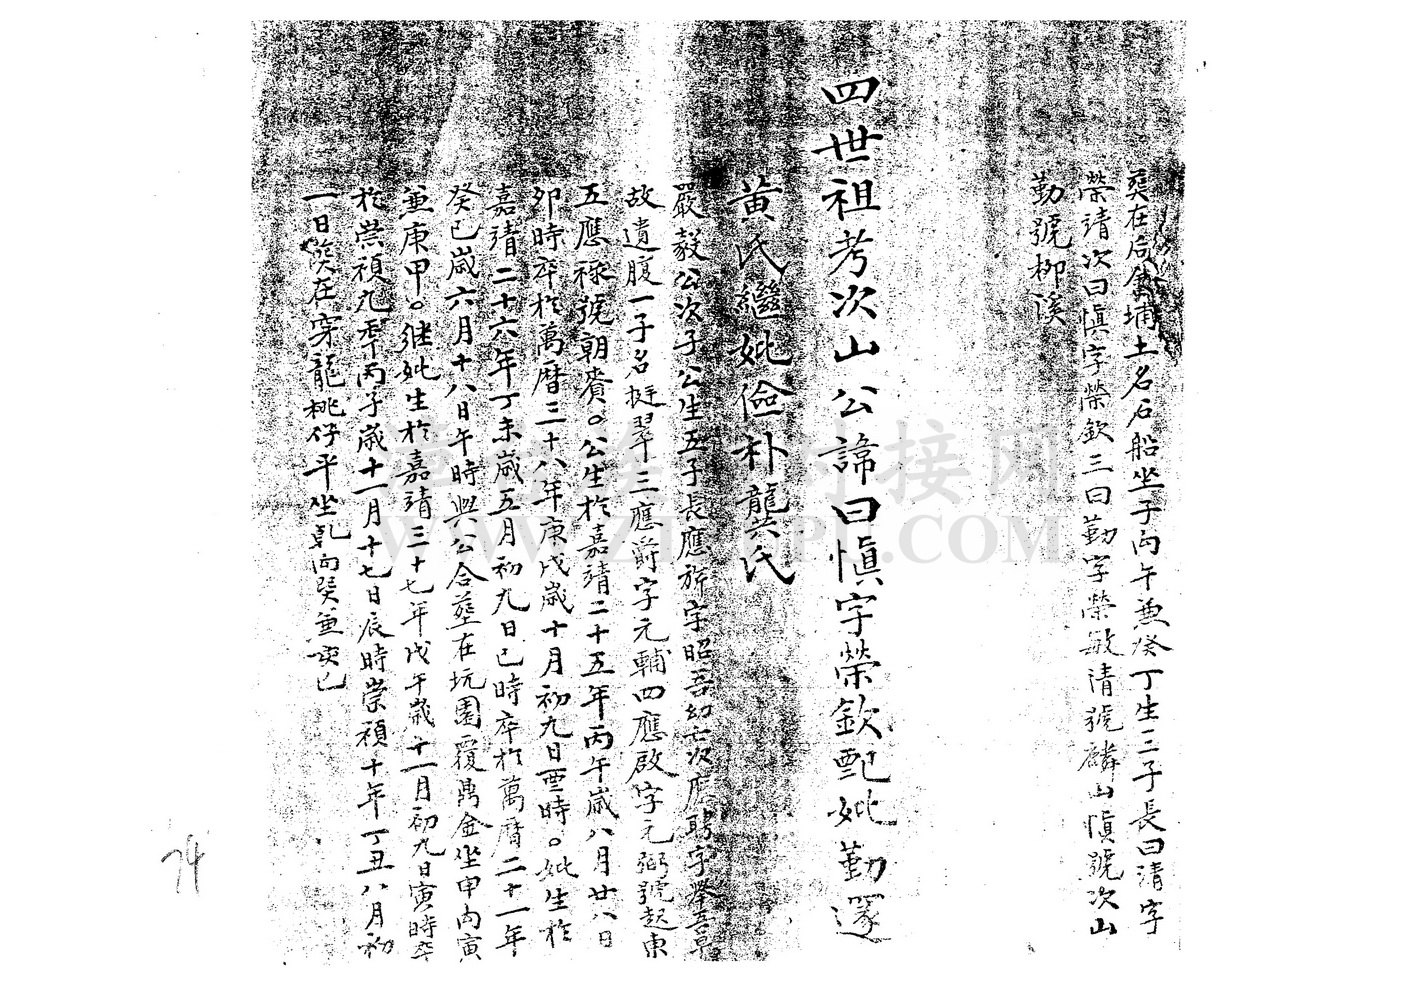 葬在后倉埔土名石船坐子向午兼癸丁生三子長曰清字
榮靖次曰慎字榮欽三曰勤字榮敏清號麟山慎號次山
勤號柳溪
四世祖考次山公諱曰慎字榮欽配妣勤邃
黃氏繼妣儉朴龔氏
嚴毅公次子公生五子長應旂字昭吾幼亡次應聘字擧吾早
故遺腹一子名挺翠三應爵字元輔四應啟字元弼號起東
五應祿號朝賚。公生於嘉靖二十五年丙午歲八月廿八日
卯時卒於萬曆三十八年庚戌歲十月初九日酉時。妣生於
嘉靖二十六年丁未歲五月初九日巳時卒於萬曆二十一年
癸巳歲六月十八日午時與公合葬在坑園覆鼎金坐申向寅
兼庚甲。继妣生於嘉靖三十七年戊午歲十一月初九日寅時卒
於崇禎九年丙子歲十一月十七日辰時崇禎十年丁丑八月初
一日葬在穿龍桃仔平坐乾向巽兼亥巳
74
族谱对接网
WWW.ZUPU.COM